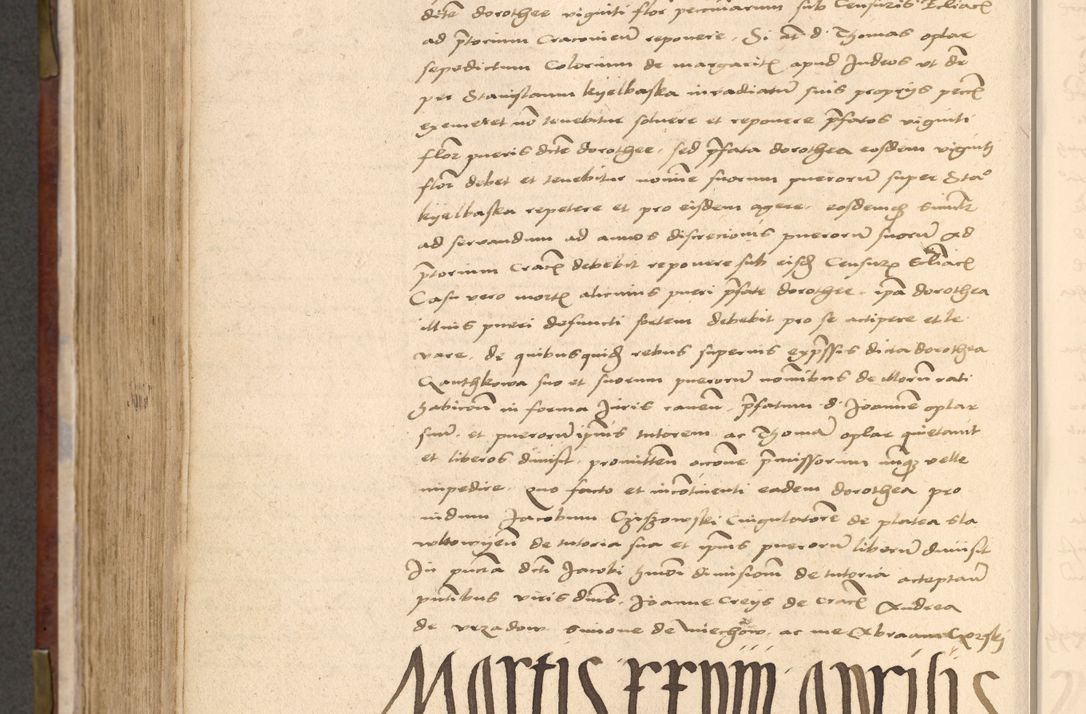 dicte dorothee viginti flor pecuniarum sub Censuris Eccliaci
ad ptorium Cracovien reponere. Si at d. Thomas oplar
sepedictum Colerium de margarit apud Judeos ut dr
per Stanislaum kyelbaska inradiatu suis proprys pecc
exemeret no tenebitur solvere et reponere pfatos viginti
flor pueris dicte dorothee. sed pfata dorothea eosdem viginti
flor debet et tenebitur nomine suorum pueroru super Sta
kyelbaska repetere et pro eisdem agere. eosdemq similr
ad servandum ad annos discrecionis pueroru suoru ad
ptorium Crac debebit reponere sub eisd Censuris Ecliaci
Casu vero mortis alicuius pueri pfate dorothee. ipa dorothea
illius pueri defuncti sortem debebit pro se accipere et le
vare. de quibusquid rebus superius expssis dicta dorothea
suo et suorum pueroru nominibus de rati
habicoe in forma Juris caven. pfatum d. Joannem oplar
suu. et pueroru ipius tutorem ac Thoma oplar quietavit
et liberos dimisit. promitten occone pmissorum nunq velle
impedire. quo facto et incontinenti eadem dorothea pro
vidum Jacobum Czyszowski Cingulatore de platea sla
wkowyen de tutoria sua et ipius pueroru liberu dimisit
In pncia dicti Jacobi hmoi dimissionem de tutoria acceptan
pntibus viris dnis. Joanne Creys de Crac Andrea
de Vrzadow. Simone de Miechow. ac me Abraam
Martis xxviii aprilis